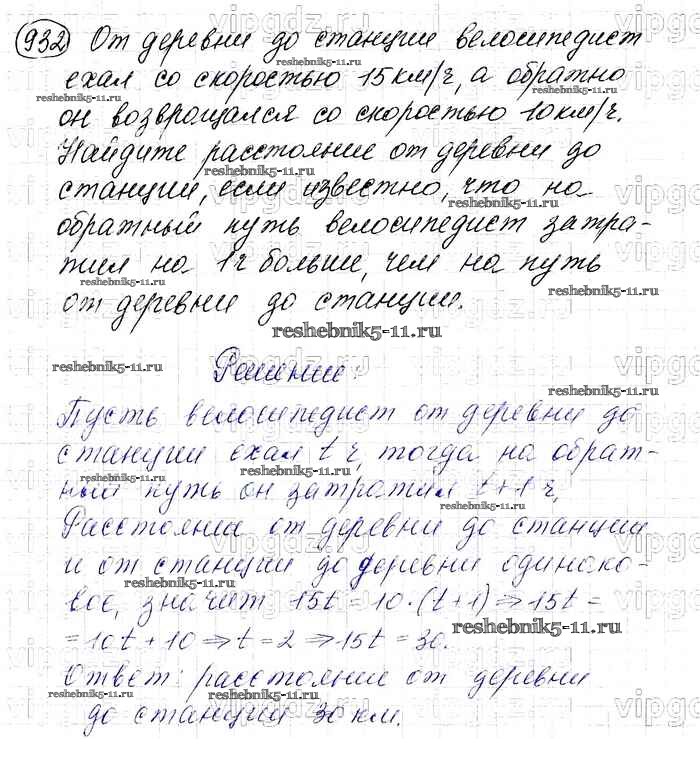 932 От деревни до станции велосипедист
ехал со скоростью 15 км/ч, а обратно
он возвращался со скоростью 10 км/ч.
Найдите расстояние от деревни до
станции, если известно, что на
обратный путь велосипедист затра-
тил на 1ч больше, чем на путь
от деревни до станции.
reshebnik5-11.ru
Решение:
Пусть велосипедист от деревни до
станции ехал t ч, тогда на обрат-
ный путь он затратил t+1 ч,
Расстояние от деревни до станции
и от станции до деревни одинако-
вое, значит 15t = 10·(t+1) ⇒ 15t =
= 10t + 10 ⇒ t = 2 ⇒ 15t = 30.
Ответ: расстояние от деревни
до станции 30 км.